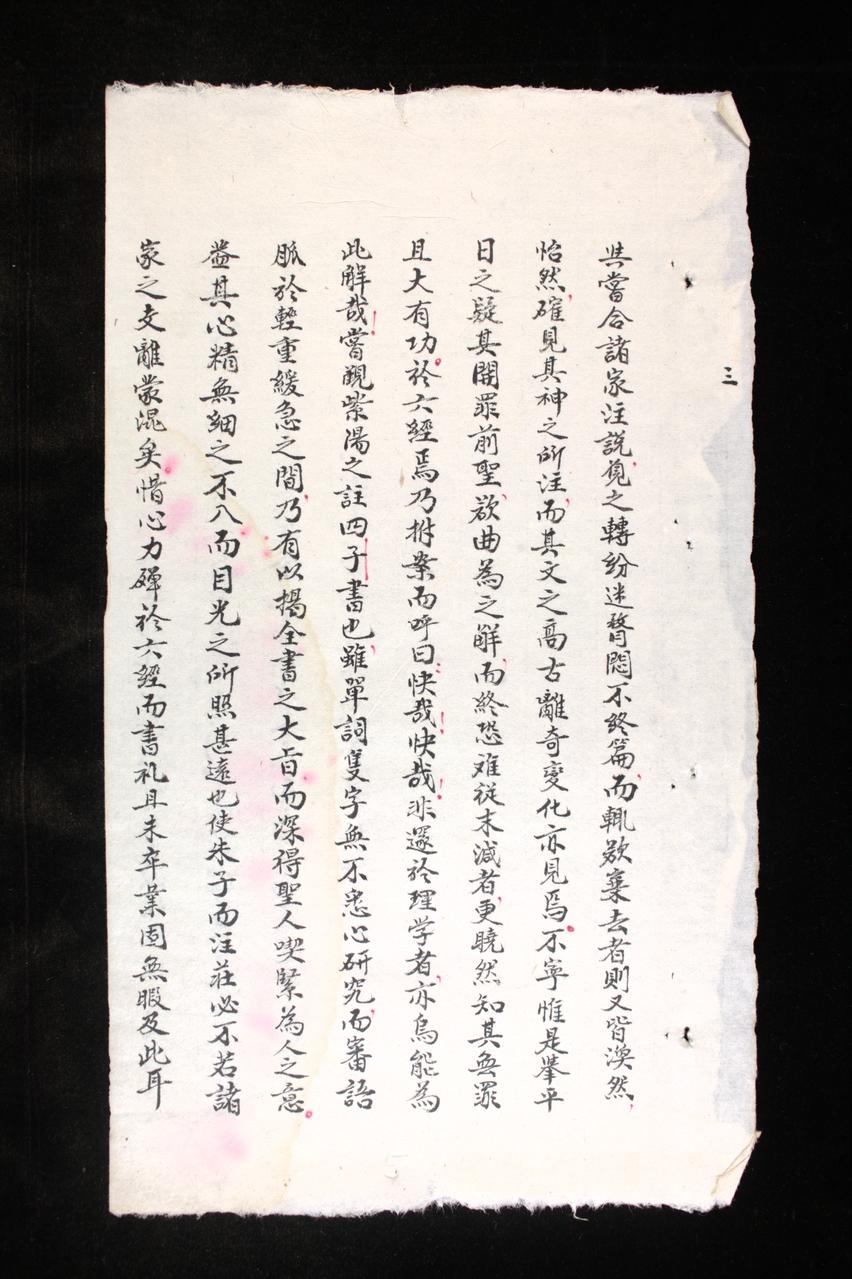 三
其嘗合諸家注說覓之轉紛迷瞀悶不終篇而輒欲棄去者則又皆渙然
怡然確見其神之所注而其文之高古離奇變化亦見焉不寧惟是舉平
日之疑其開罪前聖欲曲為之解而終恐难從末減者更曉然知其無罪
且大有功於六經焉乃拊案而呼曰快哉快哉非邃於理学者亦烏能為
此解哉嘗觀紫陽之註四子書也雖單詞隻字無不悉心研究而審語
脈於輕重緩急之間乃有以揭全書之大旨而深得聖人喫緊為人之意
蓋其心精無細之不入而目光之所照甚遠也使朱子而注莊必不若諸
家之支離蒙混矣惜心力殫於六經而書礼且未卒業固無暇及此耳